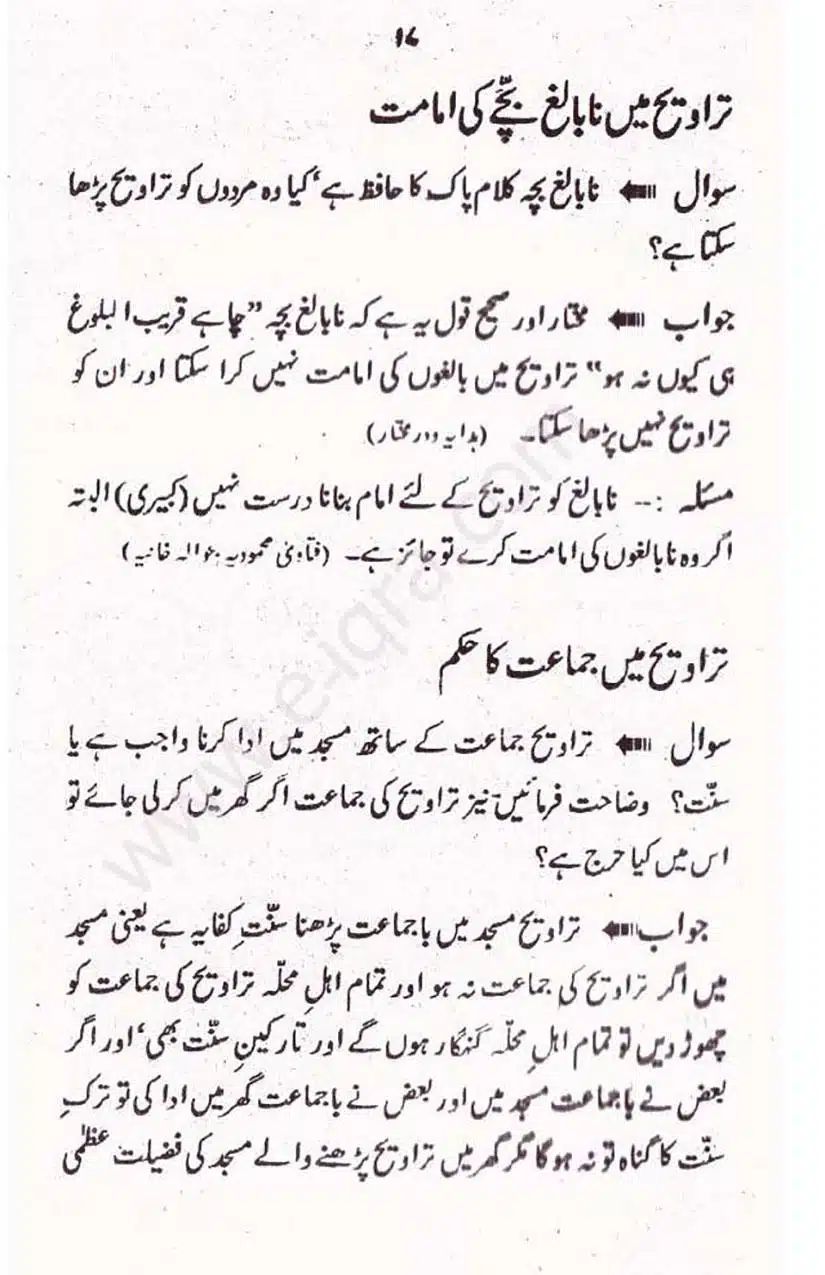 ۱۶
تراویح میں نابالغ بچّے کی امامت
سوال ⇐ نابالغ بچہ کلام پاک کا حافظ ہے‘ کیا وہ مردوں کو تراویح پڑھا
سکتا ہے؟
جواب ⇐ مختار اور صحیح قول یہ ہے کہ نابالغ بچہ ”چاہے قریب البلوغ
ہی کیوں نہ ہو“ تراویح میں بالغوں کی امامت نہیں کرا سکتا اور ان کو
تراویح نہیں پڑھا سکتا۔ (ہدایہ و در مختار)
مسئلہ :-- نابالغ کو تراویح کے لئے امام بنانا درست نہیں (کبیری) البتہ
اگر وہ نابالغوں کی امامت کرے تو جائز ہے۔ (فتاویٰ محمودیہ بحوالہ خانیہ)
تراویح میں جماعت کا حکم
سوال ⇐ تراویح جماعت کے ساتھ مسجد میں ادا کرنا واجب ہے یا
سنّت؟ وضاحت فرمائیں نیز تراویح کی جماعت اگر گھر میں کرلی جائے تو
اس میں کیا حرج ہے؟
جواب ⇐ تراویح مسجد میں باجماعت پڑھنا سنّتِ کفایہ ہے یعنی مسجد
میں اگر تراویح کی جماعت نہ ہو اور تمام اہلِ محلّہ تراویح کی جماعت کو
چھوڑ دیں تو تمام اہلِ محلّہ گنہگار ہوں گے اور تارکینِ سنّت بھی‘ اور اگر
بعض نے باجماعت مسجد میں اور بعض نے باجماعت گھر میں ادا کی تو ترکِ
سنّت کا گناہ تو نہ ہوگا مگر گھر میں تراویح پڑھنے والے مسجد کی فضیلت عظمٰی
www.e-iqra.com